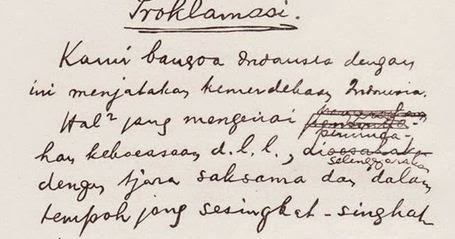 Proklamasi.
Kami bangsa Indonesia dengan
ini menjatakan kemerdekaan Indonesia.
Hal² jang mengenai peminda-
han kekoeasaan d.l.l., diselenggarakan
dengan tjara saksama dan dalam
tempoh jang sesingkat-singkat